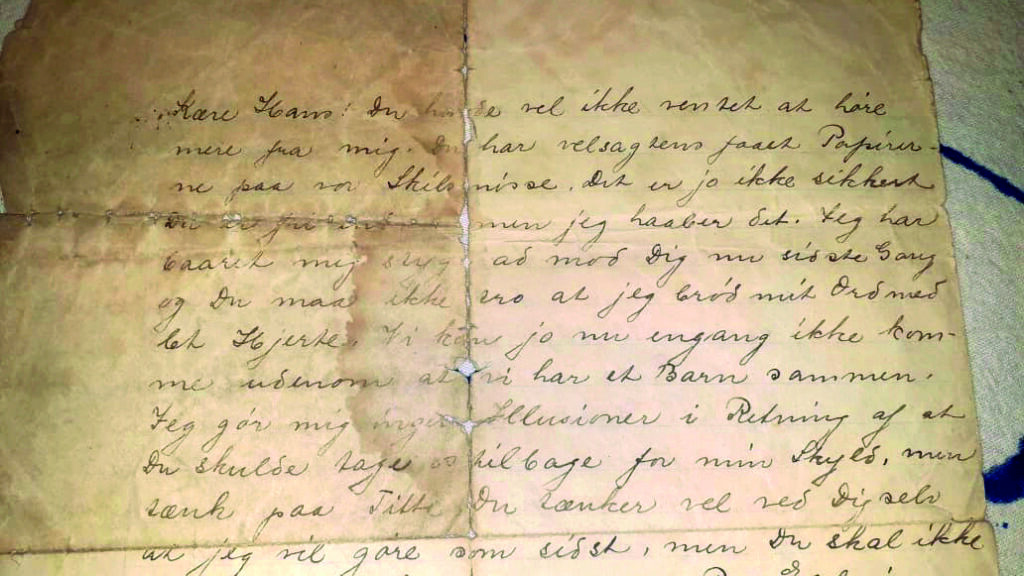 Kære Hans! Du havde vel ikke ventet at høre
mere fra mig. Du har velsagtens faaet Papirer-
ne paa vor Skilsmisse. Det er jo ikke sikkert
Du er fri endnu men jeg haaber det. Jeg har
baaret mig stygt ad mod Dig nu sidste Gang
og Du maa ikke tro at jeg brød mit Ord med
let Hjerte. Vi kan jo nu engang ikke kom-
me udenom at vi har et Barn sammen.
Jeg gør mig ingen Illusioner i Retning af at
Du skulde tage os tilbage for min Skyld, men
tænk paa Titte. Du tænker vel ved Dig selv
at jeg vil gøre som sidst, men Du skal ikke